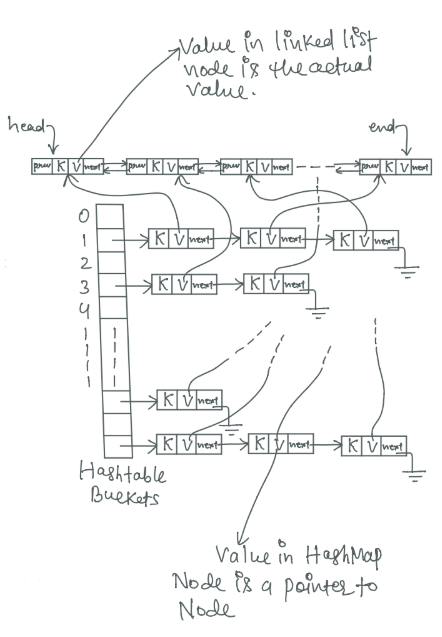 Value in linked list
node is the actual
value.
head
end
prev K V next prev K V next prev K V next prev K V next
0
1 K V next K V next K V next
2
3 K V next K V next
4
K V next
K V next K V next K V next
Hashtable
Buckets
Value in HashMap
Node is a pointer to
Node